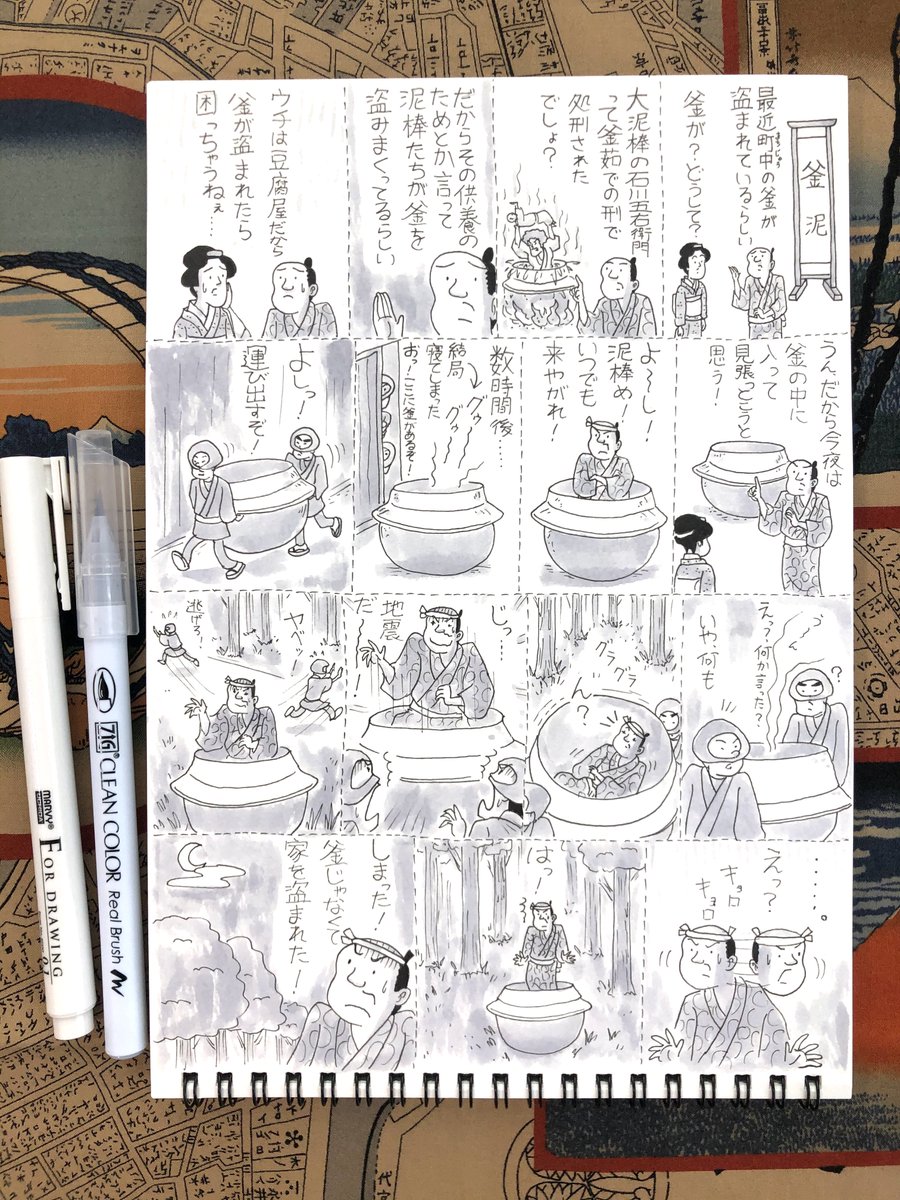 釜泥
最近町中の釜が
まちじゅう
盗まれているらしい
釜が？どうして？
大泥棒の石川五右衛門
って釜茹での刑で
処刑された
でしょ？
だからその供養の
ためとか言って
泥棒たちが釜を
盗みまくってるらしい
ウチは豆腐屋だから
釜が盗まれたら
困っちゃうねぇ…
うんだから今夜は
釜の中に
入って
見張っとこうと
思う！
よ〜し！
泥棒め！
いつでも
来やがれ！
数時間後…
グゥ
グゥ
結局
寝てしまった
おっ！ここに釜があるぞ！
よしっ！
運び出すぞ！
う〜ん
？
えっ？何か言った？
いや、何も
グラ
グラ
ん？
じっ…
地震
だ！
ヤベッ！
逃げろ！
……。
えっ？
キョロ
キョロ
はっ！
しまった！
釜じゃなくて
家を盗まれた！
MARVY
FOR DRAWING
ZIG CLEAN COLOR Real Brush